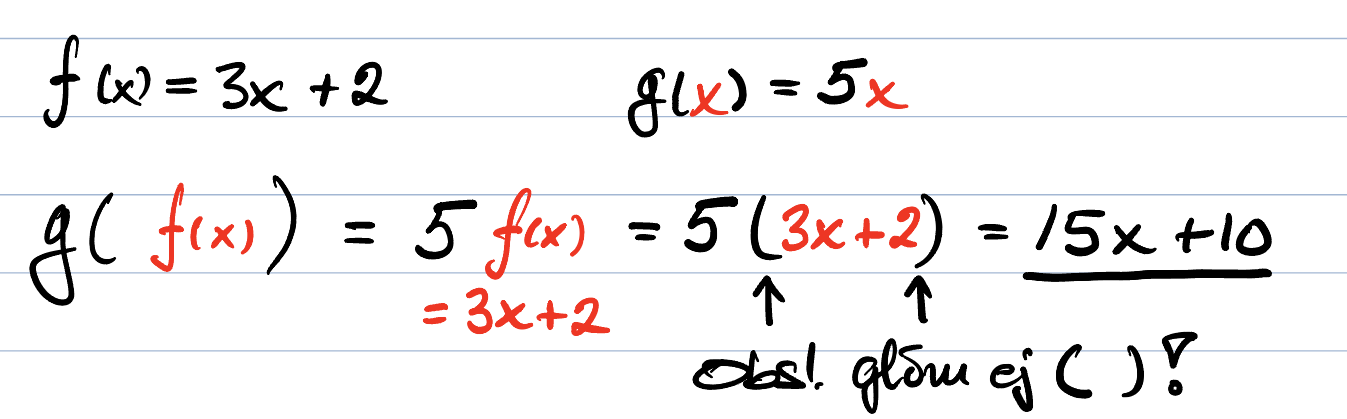 f(x) = 3x + 2 g(x) = 5x
g( f(x) ) = 5 f(x) = 5(3x+2) = 15x +10
= 3x+2 ↑ ↑
Obs! glöm ej ( )!